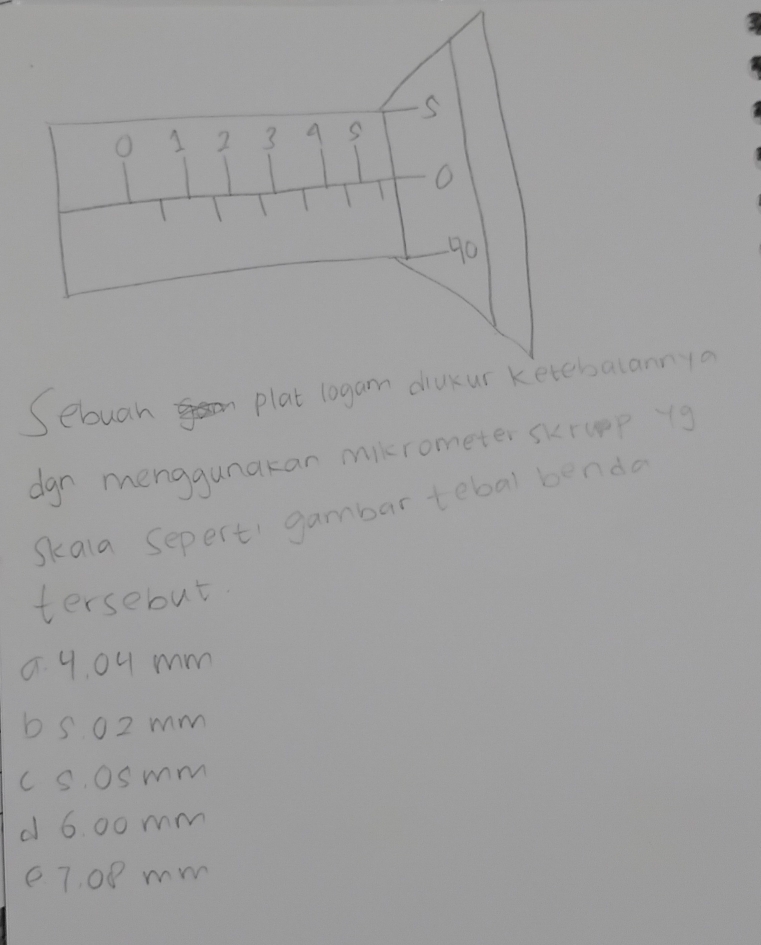 0 1 2 3 4 5
5
0
40
Sebuah plat logam diukur ketebalannya
dgn menggunakan mikrometer skrup yg
skala seperti gambar tebal benda
tersebut.
a. 4.04 mm
b 5.02 mm
c 5.05 mm
d 6.00 mm
e 7.08 mm